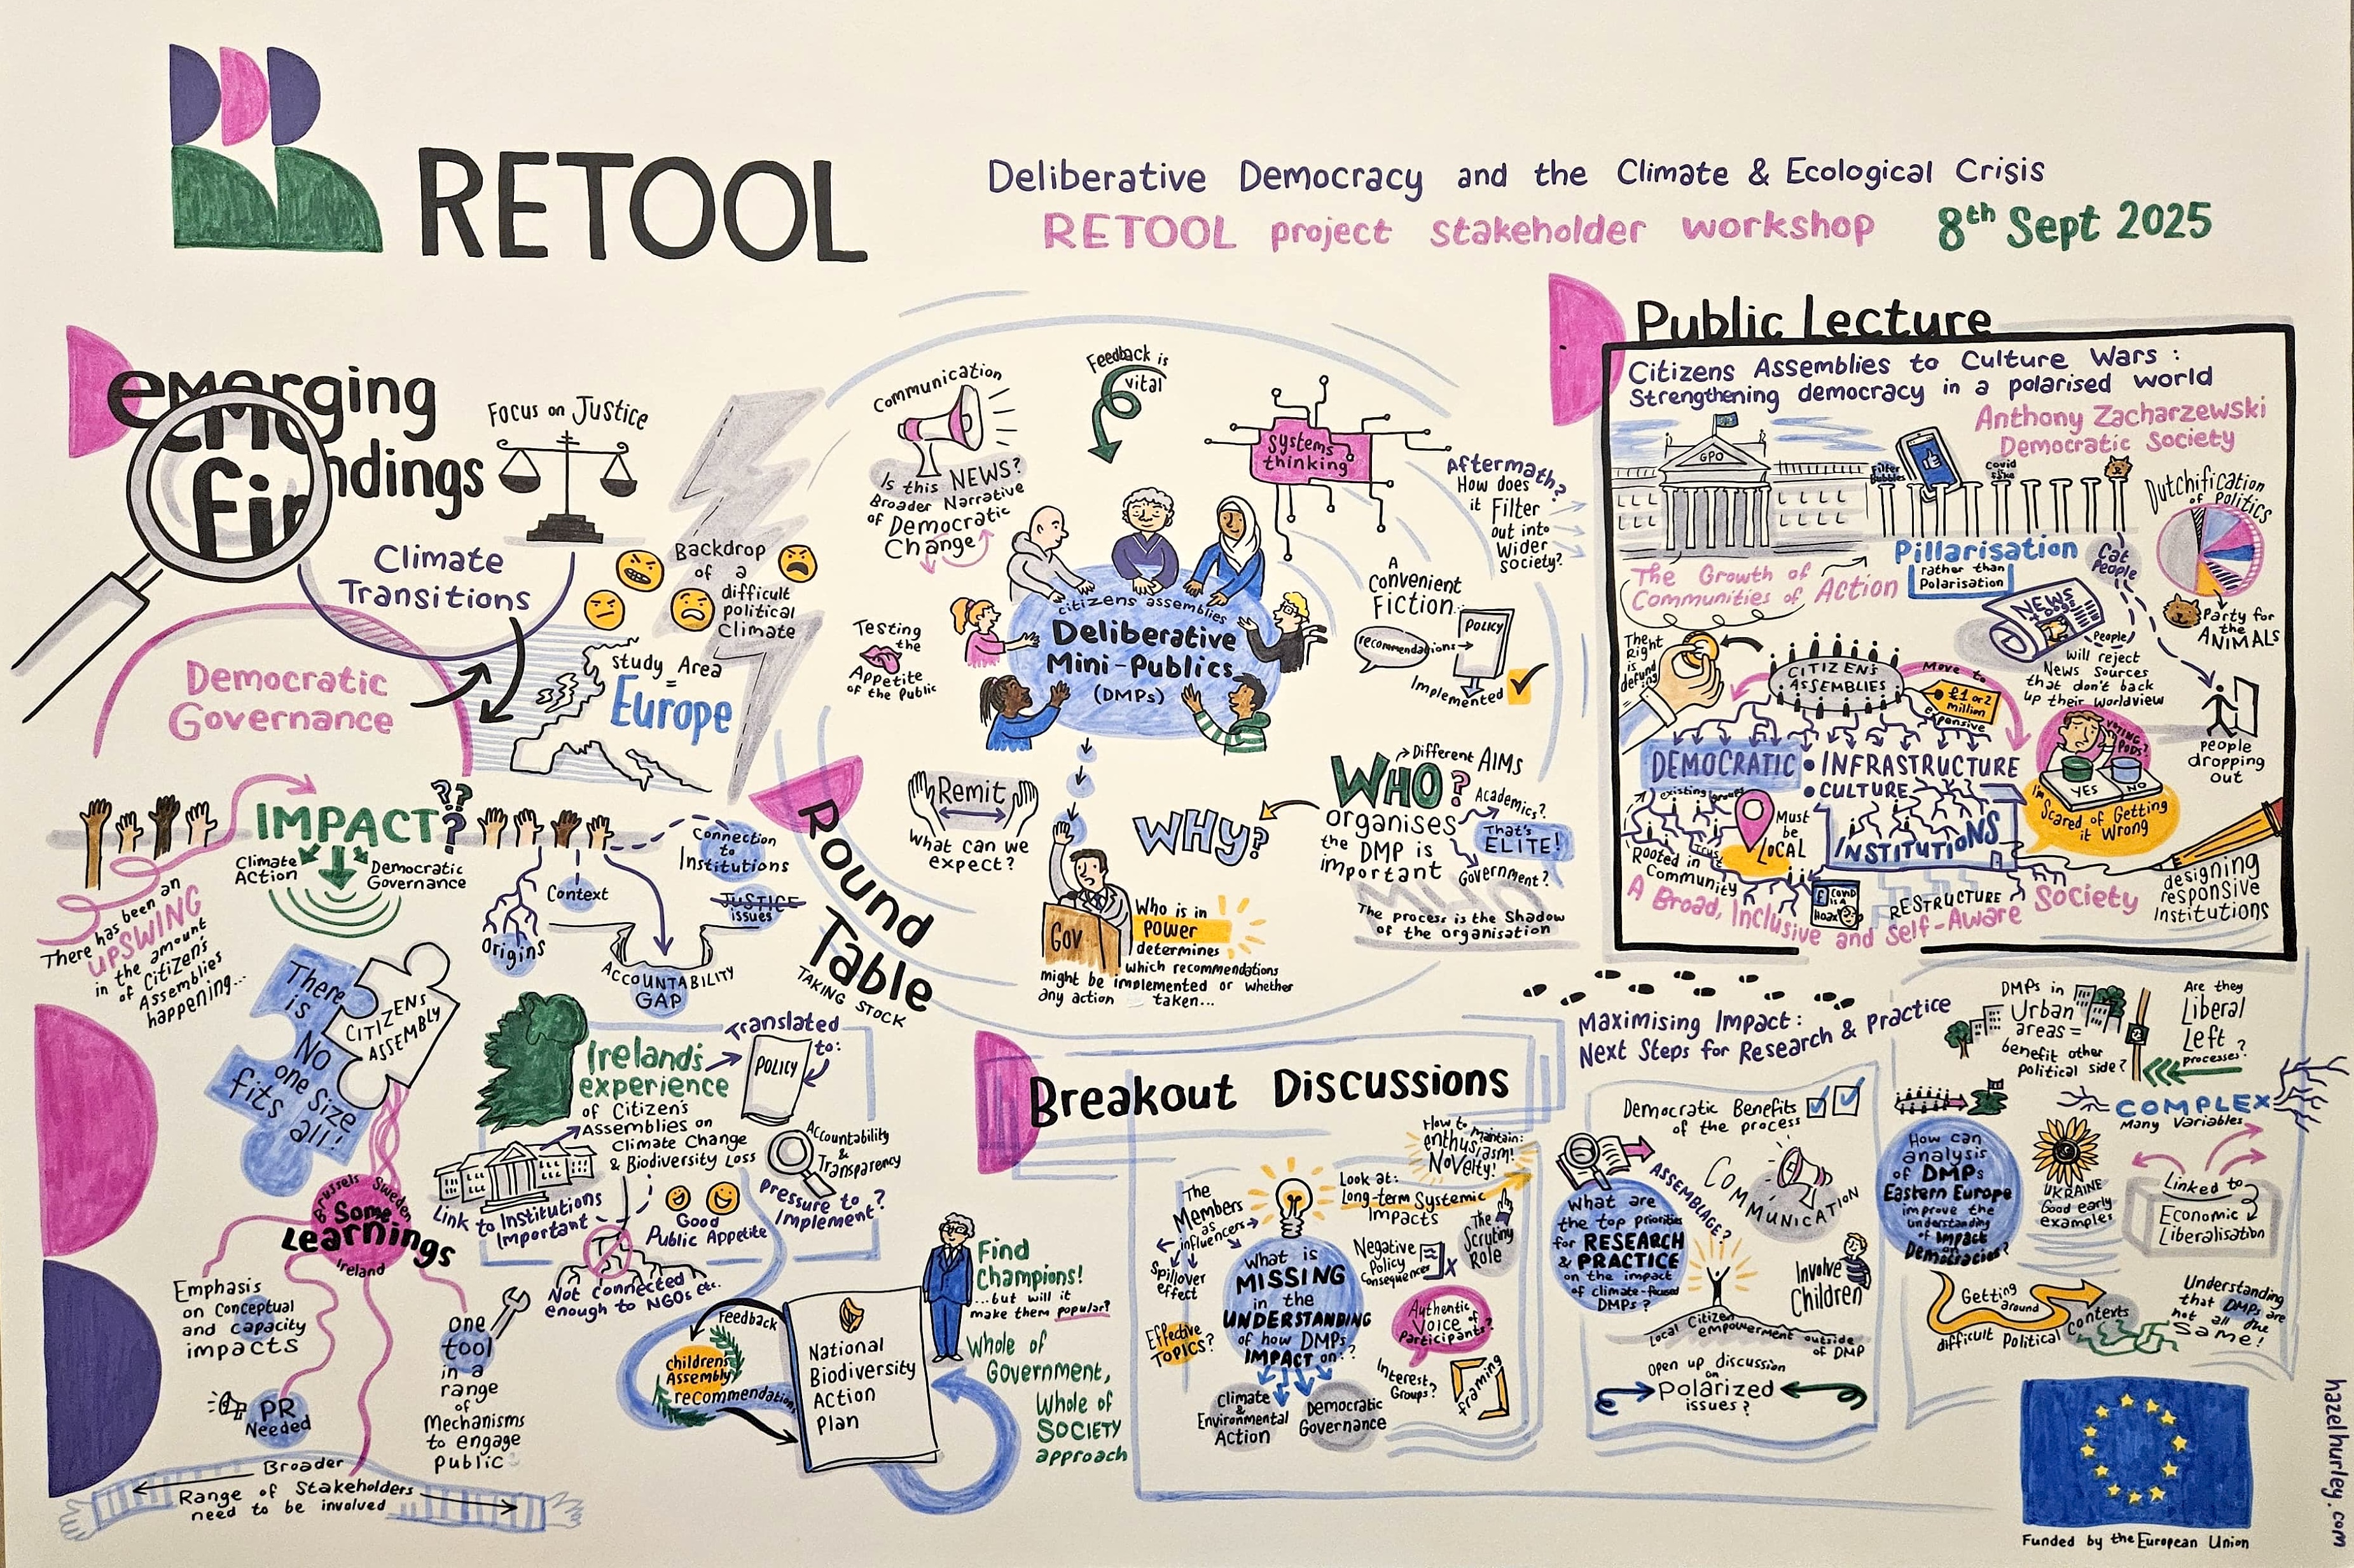 RETOOL
Deliberative Democracy and the Climate & Ecological Crisis
RETOOL project stakeholder workshop 8th Sept 2025
emerging
findings
Focus on Justice
Climate
Transitions
Democratic
Governance
Backdrop
of a
difficult
political
Climate
study Area
=
Europe
IMPACT???
Climate
Action
Democratic
Governance
There has been an
UPSWING
in the amount
of Citizen's
Assemblies
happening...
Origins
Context
ACCOUNTABILITY
GAP
Connection
to
Institutions
JUSTICE
issues
There
is
No
one size
fits
all!
CITIZENS
ASSEMBLY
Brussels
Sweden
Some
Learnings
Ireland
Emphasis
on conceptual
and capacity
impacts
PR
Needed
one
tool
in a
range
of
mechanisms
to engage
public
Broader
Range of Stakeholders
need to be involved
Ireland's
experience
of Citizen's
Assemblies on
Climate Change
& Biodiversity Loss
Translated
to:
POLICY
Accountability
&
Transparency
Pressure to
Implement?
Link to Institutions
Important
Good
Public Appetite
Not connected
enough to NGOs etc.
Feedback
childrens
Assembly
recommendations
National
Biodiversity
Action
Plan
Find
Champions!
...but will it
make them popular?
Whole of
Government,
Whole of
SOCIETY
approach
Round
Table
TAKING STOCK
Communication
Is this NEWS?
Broader Narrative
of Democratic
Change
Feedback is
vital
systems
thinking
Aftermath?
How does
it Filter
out into
Wider
Society?
Testing
the
Appetite
of the Public
citizens assemblies
Deliberative
Mini-Publics
(DMPs)
A
Convenient
FICTION...
recommendations
POLICY
Implemented
Remit
What can we
expect?
WHY?
Gov
Who is in
POWER
determines
which recommendations
might be implemented or whether
any action taken...
Different AIMS
WHO?
organises
the DMP is
important
Academics?
That's
ELITE!
Government?
WHO
The process is the Shadow
of the organisation
Public Lecture
Citizens Assemblies to Culture Wars:
Strengthening democracy in a polarised world
Anthony Zacharzewski
Democratic Society
GPO
Filter
Bubbles
Covid
Fake
Dutchification
of Politics
Pillarisation
rather than
Polarisation
Cat
People
The Growth of
Communities of Action
NEWS
DOGS
(People)
will reject
News Sources
that don't back
up their Worldview
Party for
the
ANIMALS
The Right
is
defunding
CITIZEN'S
ASSEMBLIES
Move to
£1 or 2
million
expensive
VOTING?
PODS?
YES
NO
I'm
Scared of Getting
it Wrong
people
dropping
out
DEMOCRATIC • INFRASTRUCTURE
• CULTURE
existing groups
Trust
Must
be
LOCAL
INSTITUTIONS
Rooted in
Community
Covid
is a
hoax
RESTRUCTURE
A Broad, Inclusive and Self-Aware Society
designing
responsive
Institutions
Breakout Discussions
The
Members
as
influencers
Spillover
effect
Effective
TOPICS?
How to maintain:
enthusiasm!
Novelty!
Look at:
Long-term Systemic
Impacts
Negative
Policy
Consequences
The
Scrutiny
Role
What is
MISSING
in the
UNDERSTANDING
of how DMPs
IMPACT on:?
Authentic
Voice of
Participants?
Interest
Groups?
framing
Climate
&
Environmental
Action
Democratic
Governance
Maximising Impact:
Next Steps for Research & Practice
Democratic Benefits
of the process
ASSEMBLAGE?
COMMUNICATION
What are
the top priorities
for RESEARCH
& PRACTICE
on the impact
of climate-focused
DMPs?
Involve
Children
Local Citizen
empowerment outside
of DMP
Open up discussion
on
Polarized
issues?
DMPs in
Urban
areas =
benefit other
political side?
Are they
Liberal
Left
processes?
COMPLEX
Many Variables
How can
analysis
of DMPs
Eastern Europe
improve the
understanding
of Impact
on
Democracies?
UKRAINE
Good early
examples
Linked to
Economic
Liberalisation
Getting
around
difficult Political
contexts
Understanding
that DMPs are
not all the
Same!
Funded by the European Union
hazelhurley.com